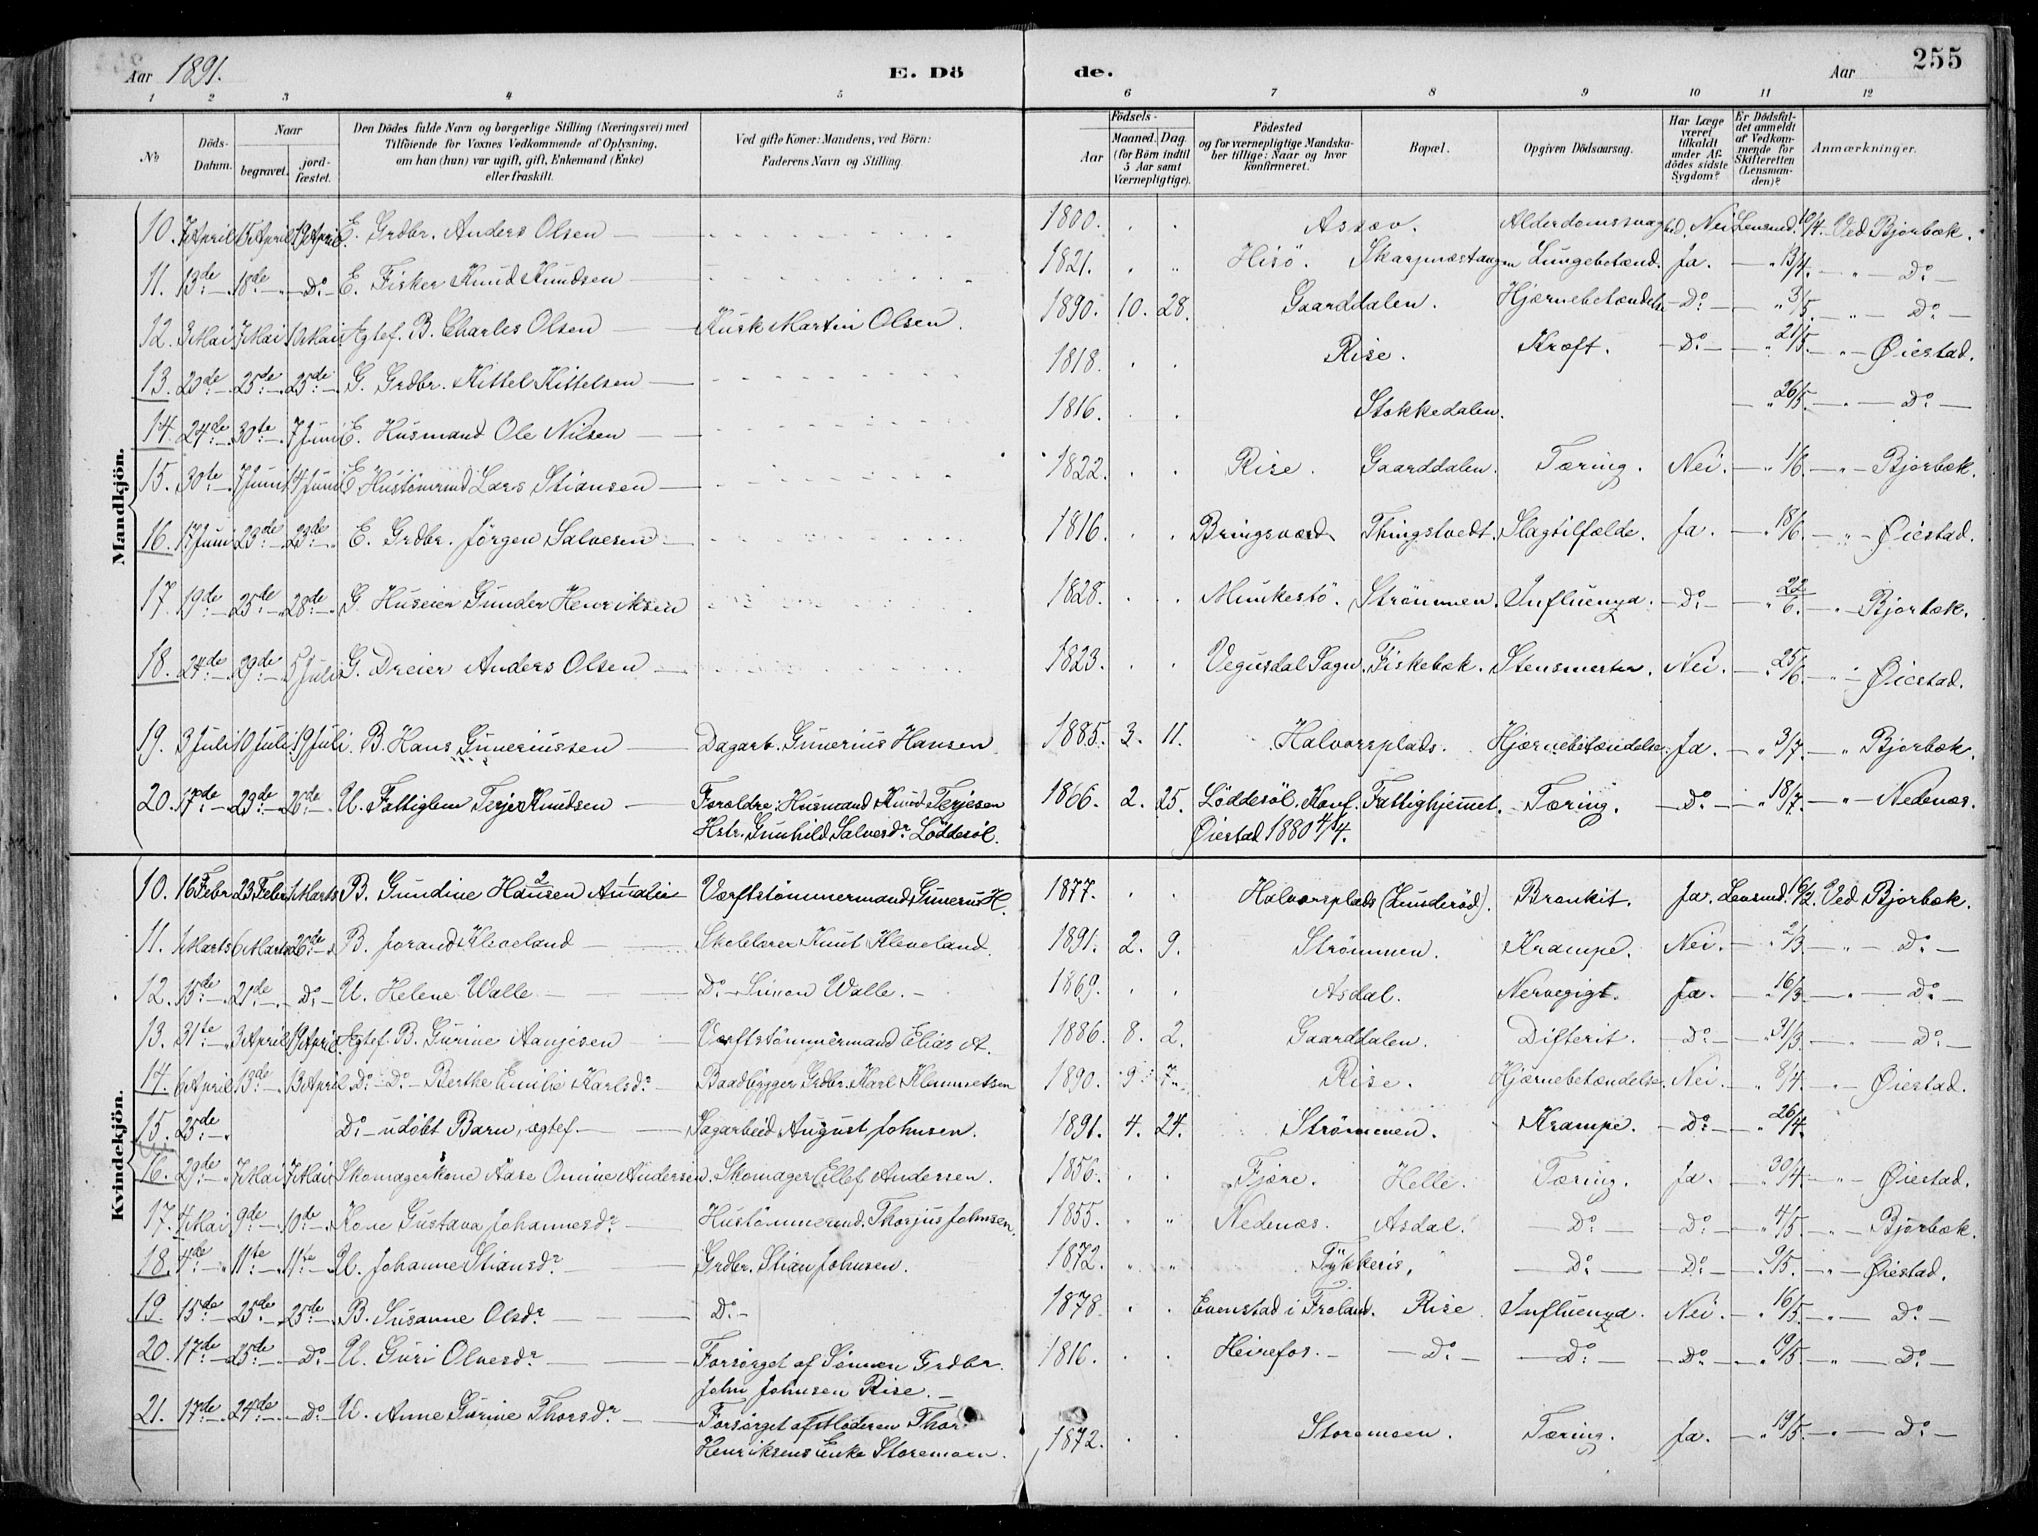 Aar 1891. E. Dö de. Aar 255
1 2 3 4 5 6 7 8 9 10 11 12
No Döds-Datum. Naar begravet. jordfæstet. Den Dödes fulde Navn og borgerlige Stilling (Næringsvei) med Tilföiende for Voxnes Vedkommende af Oplysning, om han (hun) var ugift, gift, Enkemand (Enke) eller fraskilt. Ved gifte Koner: Mandens, ved Börn: Faderens Navn og Stilling. Födsels- Aar Maaned. Dag. (for Börn indtil 5 Aar samt Værnepligtige). Födested og for værnepligtige Mandskaber tillige: Naar og hvor konfirmeret. Bopæl. Opgiven Dödsaarsag. Har Læge været tilkaldt under Afdödes sidste Sygdom? Er Dödsfaldet anmeldt af Vedkommende for Skifteretten (Lensmanden)? Anmærkninger.
Mandkjön.
10. 7 April 15 April 19 April E. Grdbr. Anders Olsen — 1800. Assæv. Alderdomssvaghed. Nei Lensmd. 10/4. Ved Bjorbæk.
11. 13de 18de — Do — E. Fisker Knud Knudsen 1821. Hisö. Skarpnæstangen Lungebetænd. Ja. — " 13/4. — " — Do —
12. 3 Mai 7 Mai 10 Mai Ægtef. B. Charles Olsen — Kusk Martin Olsen. 1890. 10. 28. Gaarddalen. Hjærnebetændelse — Do — " 3/5. — " — Do —
13. 20de 25de 25de G. Grdbr. Kittel Kittelsen — 1818. Rise. Kræft. — Do — " 21/5. — " — Øiestad.
14. 24de 30te 7 Juni E. Husmand Ole Nilsen — 1816. Stokkedalen. — " 26/5. — " — Do —
15. 30te 7 Juni 14 Juni E. Hustömrmd Lars Stiansen — 1822. Rise. Gaarddalen. Tæring. Nei. — " 1/6. — " — Bjorbæk.
16. 17 Juni 23de 23de E. Grdbr. Jörgen Salvesen — 1816. Bringsværd Thingstvedt. Slagtilfælde. Ja. — " 18/6. — " — Øiestad.
17. 19de 25de 28de G. Huseier Gunder Henriksen 1828. Munkestö. Strömmen. Influenza. — Do — " 22/6. — " — Bjorbæk.
18. 24de 29de 5 Juli G. Dreier Anders Olsen — 1823. Vegusdal Sogn. Fiskebæk. Stensmerter. Nei. — " 25/6. — " — Øiestad.
19. 3 Juli 10 Juli 19 Juli B. Hans Guneriussen — Dagarb. Gunerius Hansen 1885. 3. 11. Halvorsplads. Hjærnebetændelse. Ja. — " 3/7. — " Bjorbæk.
20. 17de 23de 26de U. Fattiglem Terje Knudsen — Forældre: Husmand Knud Terjesen 1866. 2. 25. Löddesöl. Konf. Fattighjemmet. Tæring. — Do — " 18/7. — " — Nedenæs.
Hstr. Gunhild Salvesdr. Löddesöl. Øiestad 1880 4/4.
Kvindekjön.
10. 16 Febr 23 Febr 1 Marts B. Gundine Hansen 2 Amalie 1 Værftstömmermand Gunerius H. 1877. Halvorsplads (Lunderöd). Bronkit. Ja. Lensmd. 16/2. Ved Bjorbæk.
11. 1 Marts 6 Marts 26de B. Jorand Kleveland — Skolelærer Knut Kleveland. 1891. 2. 9. Strömmen. Krampe. Nei. — " 2/3. — " — Do —
12. 15de 21de — Do — U. Helene Walle — Do — Simon Walle. — 1869. Asdal. Nervegigt. Ja. — " 16/3 — " — Do —
13. 31te 3 April 19 April Ægtef. B. Gurine Aanjesen — Værftstömmermand Elias A. 1886. 8. 2. Gaarddalen. Difterit. — Do — " 31/3. — " — Do —
14. 6 April 13de 13 April Do — Do — Berthe Emilie Karlsdr. — Baadbygger Grdbr. Karl Klemmetsen 1890. 9 7 Rise. Hjærnebetændelse. Nei. — " 8/4. — " Øiestad.
15. 25de Do — udöbt Barn, ægtef. — Sagarbeid August Johnsen. 1891. 4. 24. Strömmen. Krampe. — Do — " 26/4.
16. 29de 7 Mai 7 Mai Skomagerkone Aase Omine Andersen. Skomager Ellef Andersen. 1856. Fjære. Helle. Tæring. Ja. — " 30/4. — " — Øiestad.
17. 4 Mai 9de 10de Kone Gustava Johannesdr. — Hustömmermd. Thorjus Johnsen. 1855. Nedenæs. Asdal. Do — Do — " 4/5 — " — Bjorbæk.
18. 4de 11te 11te U. Johanne Stiansdr. — Grdbr. Stian Johnsen. 1872. Tykkeris, — Do — Do — " 9/5. — " — Øiestad.
19. 15de 25de 25de B. Susanne Olsdr. — Do — 1878. Evenstad i Froland. Rise Influenza. Nei. — " 16/5. — " — Do —
20. 17de 25de — Do — U. Guri Olvesdr. — Forsörget af Sönnen Grdbr. 1816. Heirefos. — Do — Do — Do — " 19/5. — " — Do —
John Johnsen Rise. —
21. 17de 24de — Do — U. Anne Gurine Thorsdr. — Forsörget af Moderen Thor 1872. Storemoen. Tæring. Ja. — " 19/5. — " — Do —
Henriksens Enke Storemoen.